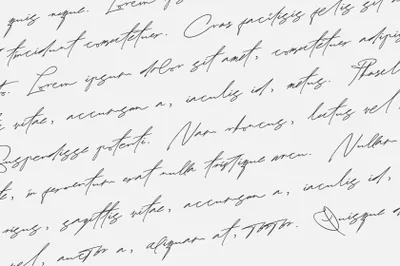 quis neque. Lorem ipsum
tincidunt consectetuer. Cras facilisis felis sit
Lorem ipsum dolor sit amet, consectetuer adipis
vitae, accumsan a, iaculis id, metus. Phasel
Suspendisse potenti. Nam rhoncus, lectus vel
in fermentum erat nulla tristique arcu. Nullam
risus, sagittis vitae, accumsan a, iaculis id,
vel, auctor a, aliquam at, tortor. Quisque